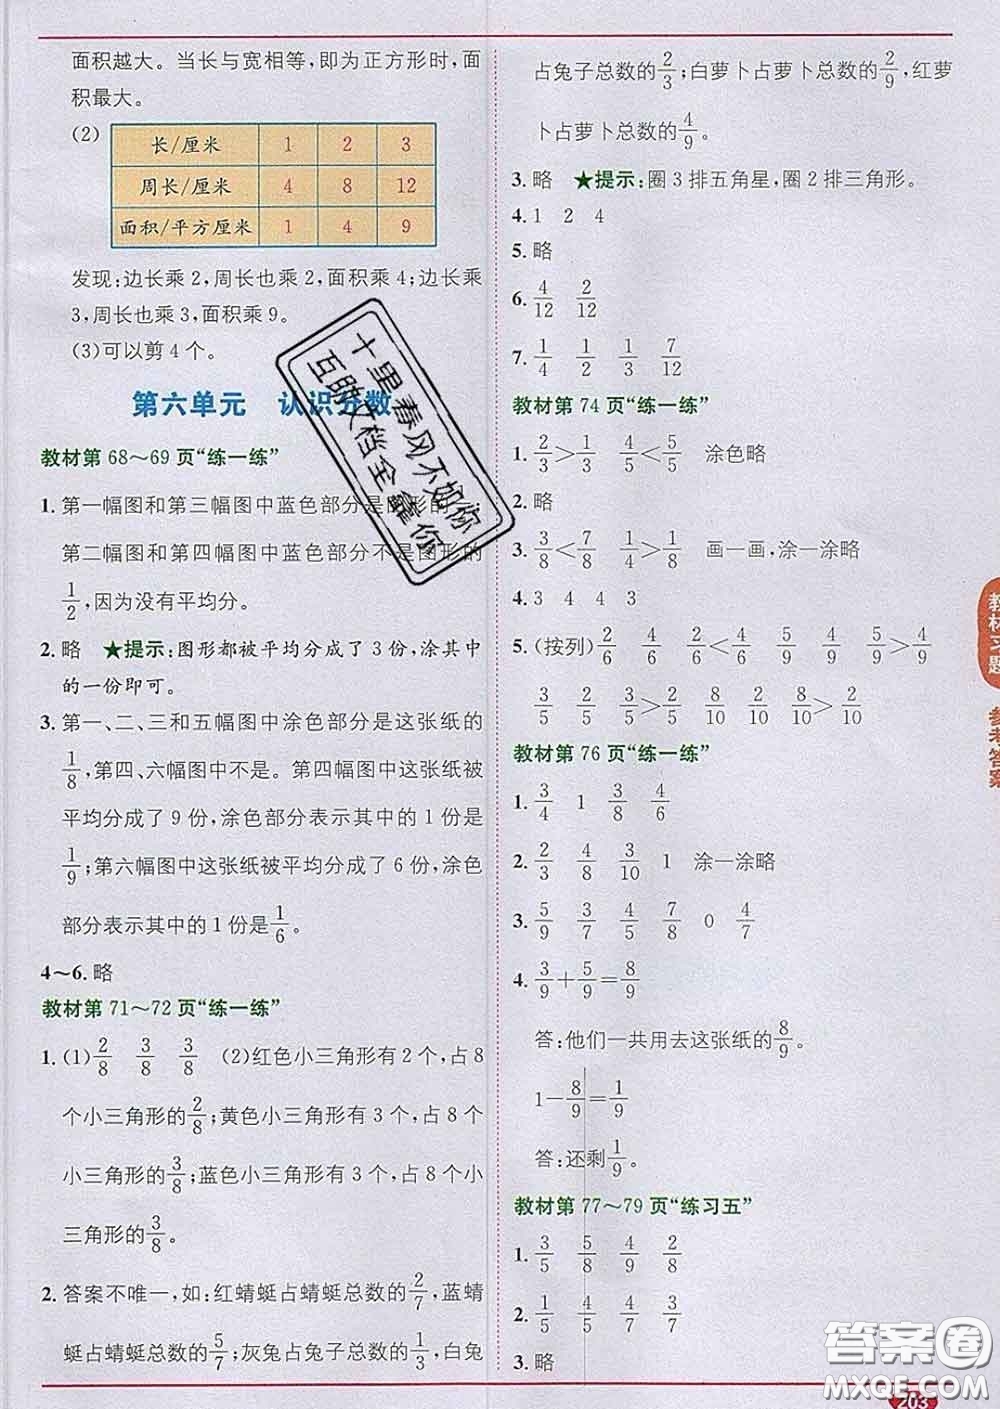 面积越大。当长与宽相等，即为正方形时，面
积最大。
(2)
长/厘米 1 2 3
周长/厘米 4 8 12
面积/平方厘米 1 4 9
发现：边长乘 2，周长也乘 2，面积乘 4；边长乘
3，周长也乘 3，面积乘 9。
(3)可以剪 4 个。
第六单元 认识分数
教材第 68～69 页“练一练”
1. 第一幅图和第三幅图中蓝色部分是图形的
第二幅图和第四幅图中蓝色部分不是图形的
1/2，因为没有平均分。
2. 略 ★提示：图形都被平均分成了 3 份，涂其中
的一份即可。
3. 第一、二、三和五幅图中涂色部分是这张纸的
1/8，第四、六幅图中不是。第四幅图中这张纸被
平均分成了 9 份，涂色部分表示其中的 1 份是
1/9；第六幅图中这张纸被平均分成了 6 份，涂色
部分表示其中的 1 份是1/6。
4～6. 略
教材第 71～72 页“练一练”
1. (1)2/8 3/8 3/8 (2)红色小三角形有 2 个，占 8
个小三角形的2/8；黄色小三角形有 3 个，占 8 个
小三角形的3/8；蓝色小三角形有 3 个，占 8 个小
三角形的3/8。
2. 答案不唯一，如：红蜻蜓占蜻蜓总数的2/7，蓝蜻
蜓占蜻蜓总数的5/7；灰兔占兔子总数的1/3，白兔
占兔子总数的2/3；白萝卜占萝卜总数的2/9，红萝
卜占萝卜总数的4/9。
3. 略 ★提示：圈 3 排五角星，圈 2 排三角形。
4. 1 2 4
5. 略
6. 4/12 2/12
7. 1/4 1/2 1/3 7/12
教材第 74 页“练一练”
1. 2/3＞1/3 4/5＜5/5 涂色略
2. 略
3. 3/8＜7/8 1/3＞1/8 画一画，涂一涂略
4. 3 4 4 3
5. (按列)2/6 4/6 2/6＜4/6 5/9 4/9 5/9＞4/9
3/5 4/5 3/5＜4/5 8/10 2/10 8/10＞2/10
教材第 76 页“练一练”
1. 3/4 1 3/8 4/6
2. 2/3 4/8 3/10 1 涂一涂略
3. 5/9 3/7 4/5 7/8 0 4/7
4. 3/9＋5/9＝8/9
答：他们一共用去这张纸的8/9。
1－8/9＝1/9
答：还剩1/9。
教材第 77～79 页“练习五”
1. 3/5 5/8 4/9 2/8
2. 1/5 4/5 4/7 3/7
3. 略
教材习题
参考答案
203
十里春风不如你
互助文档全靠你
答案圈
MXQE.COM